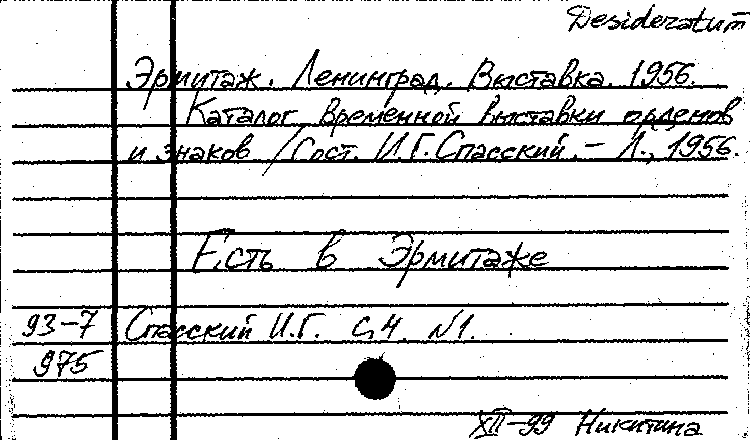 Desideratum
Эрмитаж. Ленинград. Выставка. 1956.
Каталог временной выставки орденов
и знаков / Сост. И.Г. Спасский. – Л., 1956.
Есть в Эрмитаже
93-7 Спасский И.Г. С.4. N1.
975
XII-99 Никитина